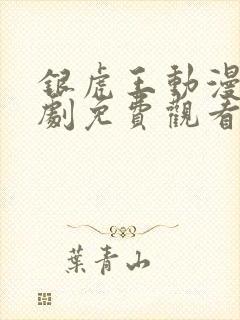 銀虎王動漫
劇免費觀看
葉青山